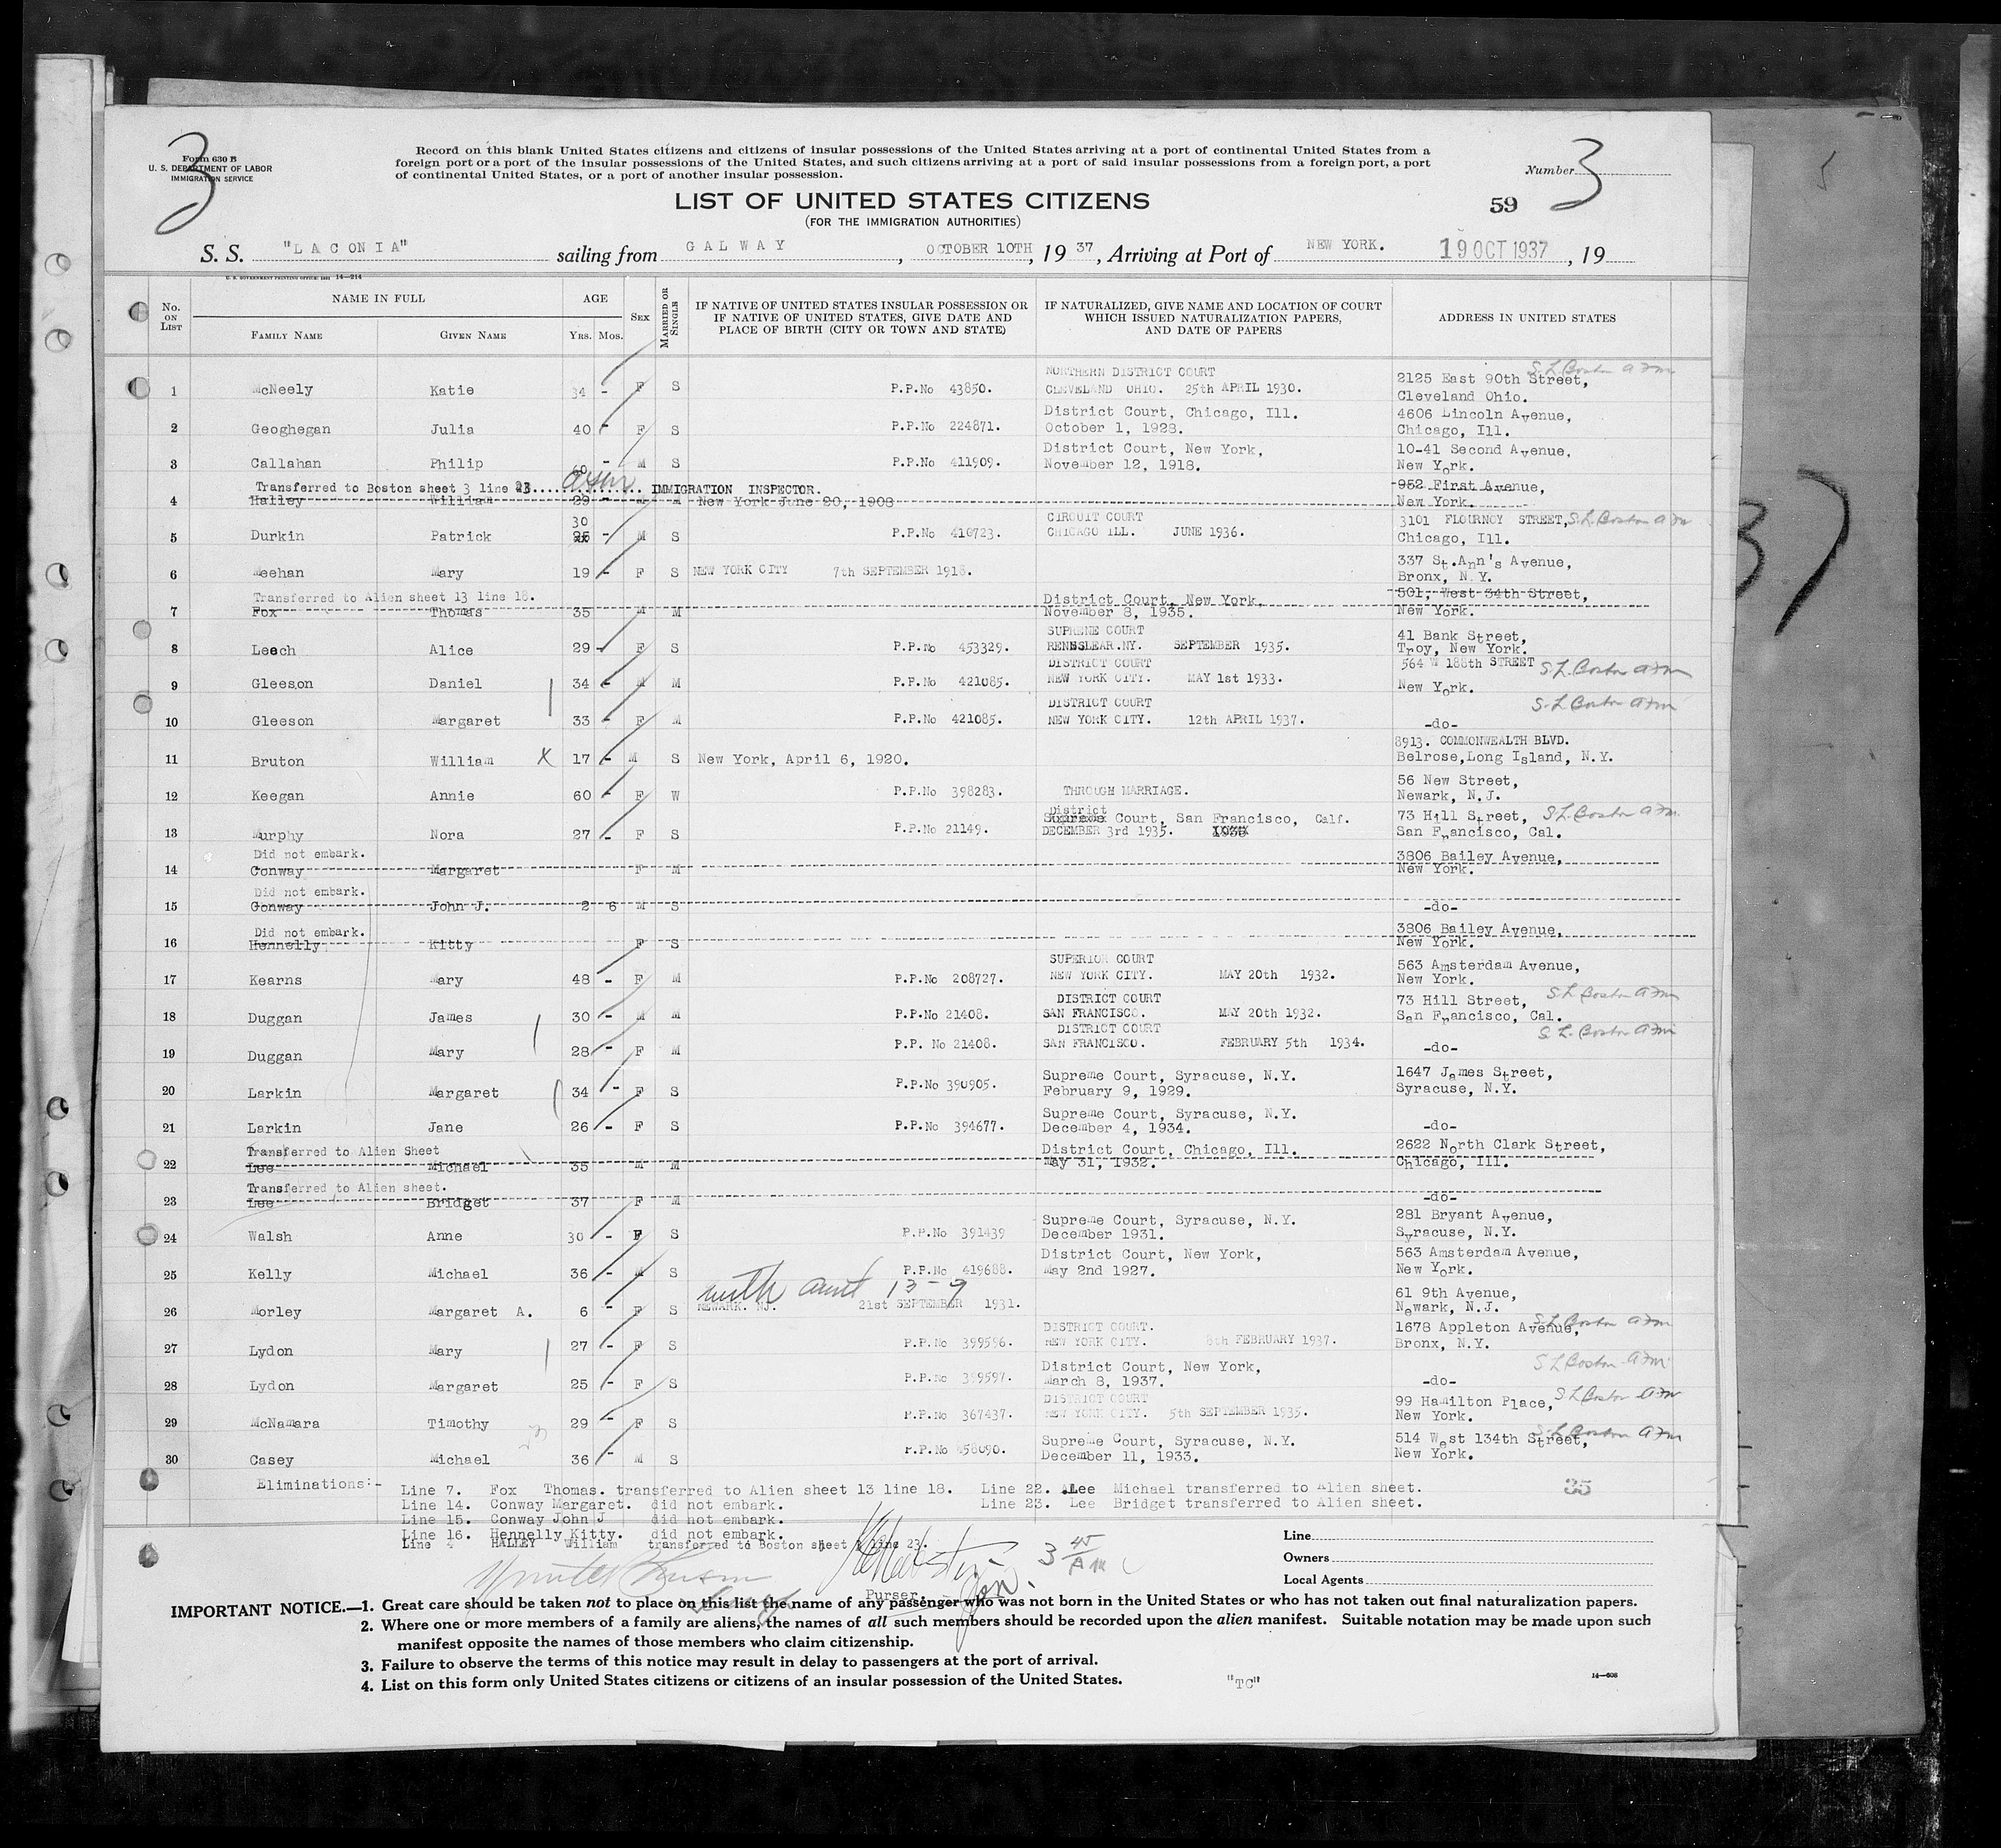 3
Form 630 B
U. S. DEPARTMENT OF LABOR
IMMIGRATION SERVICE
Record on this blank United States citizens and citizens of insular possessions of the United States arriving at a port of continental United States from a
foreign port or a port of the insular possessions of the United States, and such citizens arriving at a port of said insular possessions from a foreign port, a port
of continental United States, or a port of another insular possession.
Number 3
LIST OF UNITED STATES CITIZENS
(FOR THE IMMIGRATION AUTHORITIES)
59
S. S. "LACONIA" sailing from GALWAY, OCTOBER 10TH, 19 37, Arriving at Port of NEW YORK. 19 OCT 1937, 19
U. S. GOVERNMENT PRINTING OFFICE: 1931 14—214
No. ON LIST NAME IN FULL AGE SEX MARRIED OR SINGLE IF NATIVE OF UNITED STATES INSULAR POSSESSION OR IF NATIVE OF UNITED STATES, GIVE DATE AND PLACE OF BIRTH (CITY OR TOWN AND STATE) IF NATURALIZED, GIVE NAME AND LOCATION OF COURT WHICH ISSUED NATURALIZATION PAPERS, AND DATE OF PAPERS ADDRESS IN UNITED STATES
FAMILY NAME GIVEN NAME YRS. MOS.
NORTHERN DISTRICT COURT S.L. Boston a Fm
1 McNeely Katie 34 - F S P.P.No 43850. CLEVELAND OHIO. 25th APRIL 1930. 2125 East 90th Street, Cleveland Ohio.
2 Geoghegan Julia 40 - F S P.P.No 224871. District Court, Chicago, Ill. October 1, 1928. 4606 Lincoln Avenue, Chicago, Ill.
3 Callahan Philip 60 - M S P.P.No 411909. District Court, New York, November 12, 1918. 10-41 Second Avenue, New York.
Transferred to Boston sheet 3 line 23. IMMIGRATION INSPECTOR.
4 Halley William 29 - M M New York June 20, 1908 952 First Avenue, New York.
5 Durkin Patrick 30 - M S P.P.No 410723. CIRCUIT COURT CHICAGO ILL. JUNE 1936. 3101 FLOURNOY STREET, Chicago, Ill. S.L. Boston a Fm
6 Meehan Mary 19 - F S NEW YORK CITY 7th SEPTEMBER 1918. 337 St.Ann's Avenue, Bronx, N.Y.
Transferred to Alien sheet 13 line 18.
7 Fox Thomas 35 M M District Court, New York, November 8, 1935. 501, West 34th Street, New York.
8 Leech Alice 29 - F S P.P.No 453329. SUPREME COURT RENSSLEAR.NY. SEPTEMBER 1935. 41 Bank Street, Troy, New York.
9 Gleeson Daniel 34 - M M P.P.No 421085. DISTRICT COURT NEW YORK CITY. MAY 1st 1933. 564 W 188th STREET New York. S.L. Boston a Fm
10 Gleeson Margaret 33 - F M P.P.No 421085. DISTRICT COURT NEW YORK CITY. 12th APRIL 1937. -do- S.L Boston a Fm
11 Bruton William X 17 - M S New York, April 6, 1920. 8913. COMMONWEALTH BLVD. Belrose,Long Island, N.Y.
12 Keegan Annie 60 - F W P.P.No 398283. THROUGH MARRIAGE. 56 New Street, Newark, N.J.
13 Murphy Nora 27 - F S P.P.No 21149. District Supreme Court, San Francisco, Calf. DECEMBER 3rd 1935. 73 Hill Street, San Francisco, Cal. S.L Boston a Fm.
Did not embark.
14 Conway Margaret F M 3806 Bailey Avenue, New York.
Did not embark.
15 Conway John J. 2 6 M S -do-
Did not embark.
16 Hennelly Kitty F S 3806 Bailey Avenue, New York.
17 Kearns Mary 48 - F M P.P.No 208727. SUPERIOR COURT NEW YORK CITY. MAY 20th 1932. 563 Amsterdam Avenue, New York.
18 Duggan James 30 - M M P.P.No 21408. DISTRICT COURT SAN FRANCISCO. MAY 20th 1932. 73 Hill Street, San Francisco, Cal. S L Boston a Fm
19 Duggan Mary 28 - F M P.P. No 21408. DISTRICT COURT SAN FRANCISCO. FEBRUARY 5th 1934. -do- S L. Boston a Fm
20 Larkin Margaret 34 - F S P.P.No 390905. Supreme Court, Syracuse, N.Y. February 9, 1929. 1647 James Street, Syracuse, N.Y.
21 Larkin Jane 26 - F S P.P.No 394677. Supreme Court, Syracuse, N.Y. December 4, 1934. -do-
Transferred to Alien Sheet
22 Lee Michael 35 M M District Court, Chicago, Ill. May 31, 1932. 2622 North Clark Street, Chicago, Ill.
Transferred to Alien sheet.
23 Lee Bridget 37 F M -do-
24 Walsh Anne 30 - F S P.P.No 391439 Supreme Court, Syracuse, N.Y. December 1931. 281 Bryant Avenue, Syracuse, N.Y.
25 Kelly Michael 36 - M S P.P.No 419688. District Court, New York, May 2nd 1927. 563 Amsterdam Avenue, New York.
with aunt 13-9
26 Morley Margaret A. 6 - F S NEWARK. NJ. 21st SEPTEMBER 1931. 61 9th Avenue, Newark, N.J.
27 Lydon Mary 27 - F S P.P.No 399596. DISTRICT COURT. NEW YORK CITY. 8th FEBRUARY 1937. 1678 Appleton Avenue, Bronx, N.Y. S.L Boston a Fm
28 Lydon Margaret 25 - F S P.P.No 399597. District Court, New York, March 8, 1937. -do- S L Boston a Fm
29 McNamara Timothy 29 - F S P.P.No 367437. DISTRICT COURT NEW YORK CITY. 5th SEPTEMBER 1935. 99 Hamilton Place, New York. S L Boston a Fm
30 Casey Michael 36 - M S P.P.No 458090. Supreme Court, Syracuse, N.Y. December 11, 1933. 514 West 134th Street, New York. S.L Boston a Fm
Eliminations:- Line 7. Fox Thomas. transferred to Alien sheet 13 line 18. Line 22. Lee Michael transferred to Alien sheet. 35
Line 14. Conway Margaret. did not embark. Line 23. Lee Bridget transferred to Alien sheet.
Line 15. Conway John J did not embark.
Line 16. Hennelly Kitty. did not embark.
Line 4 HALLEY William transferred to Boston sheet line 23.
3 45 AM
Purser.
Line
Owners
Local Agents
IMPORTANT NOTICE.—1. Great care should be taken not to place on this list the name of any passenger who was not born in the United States or who has not taken out final naturalization papers.
2. Where one or more members of a family are aliens, the names of all such members should be recorded upon the alien manifest. Suitable notation may be made upon such
manifest opposite the names of those members who claim citizenship.
3. Failure to observe the terms of this notice may result in delay to passengers at the port of arrival.
4. List on this form only United States citizens or citizens of an insular possession of the United States.
"TC"
14—608
37